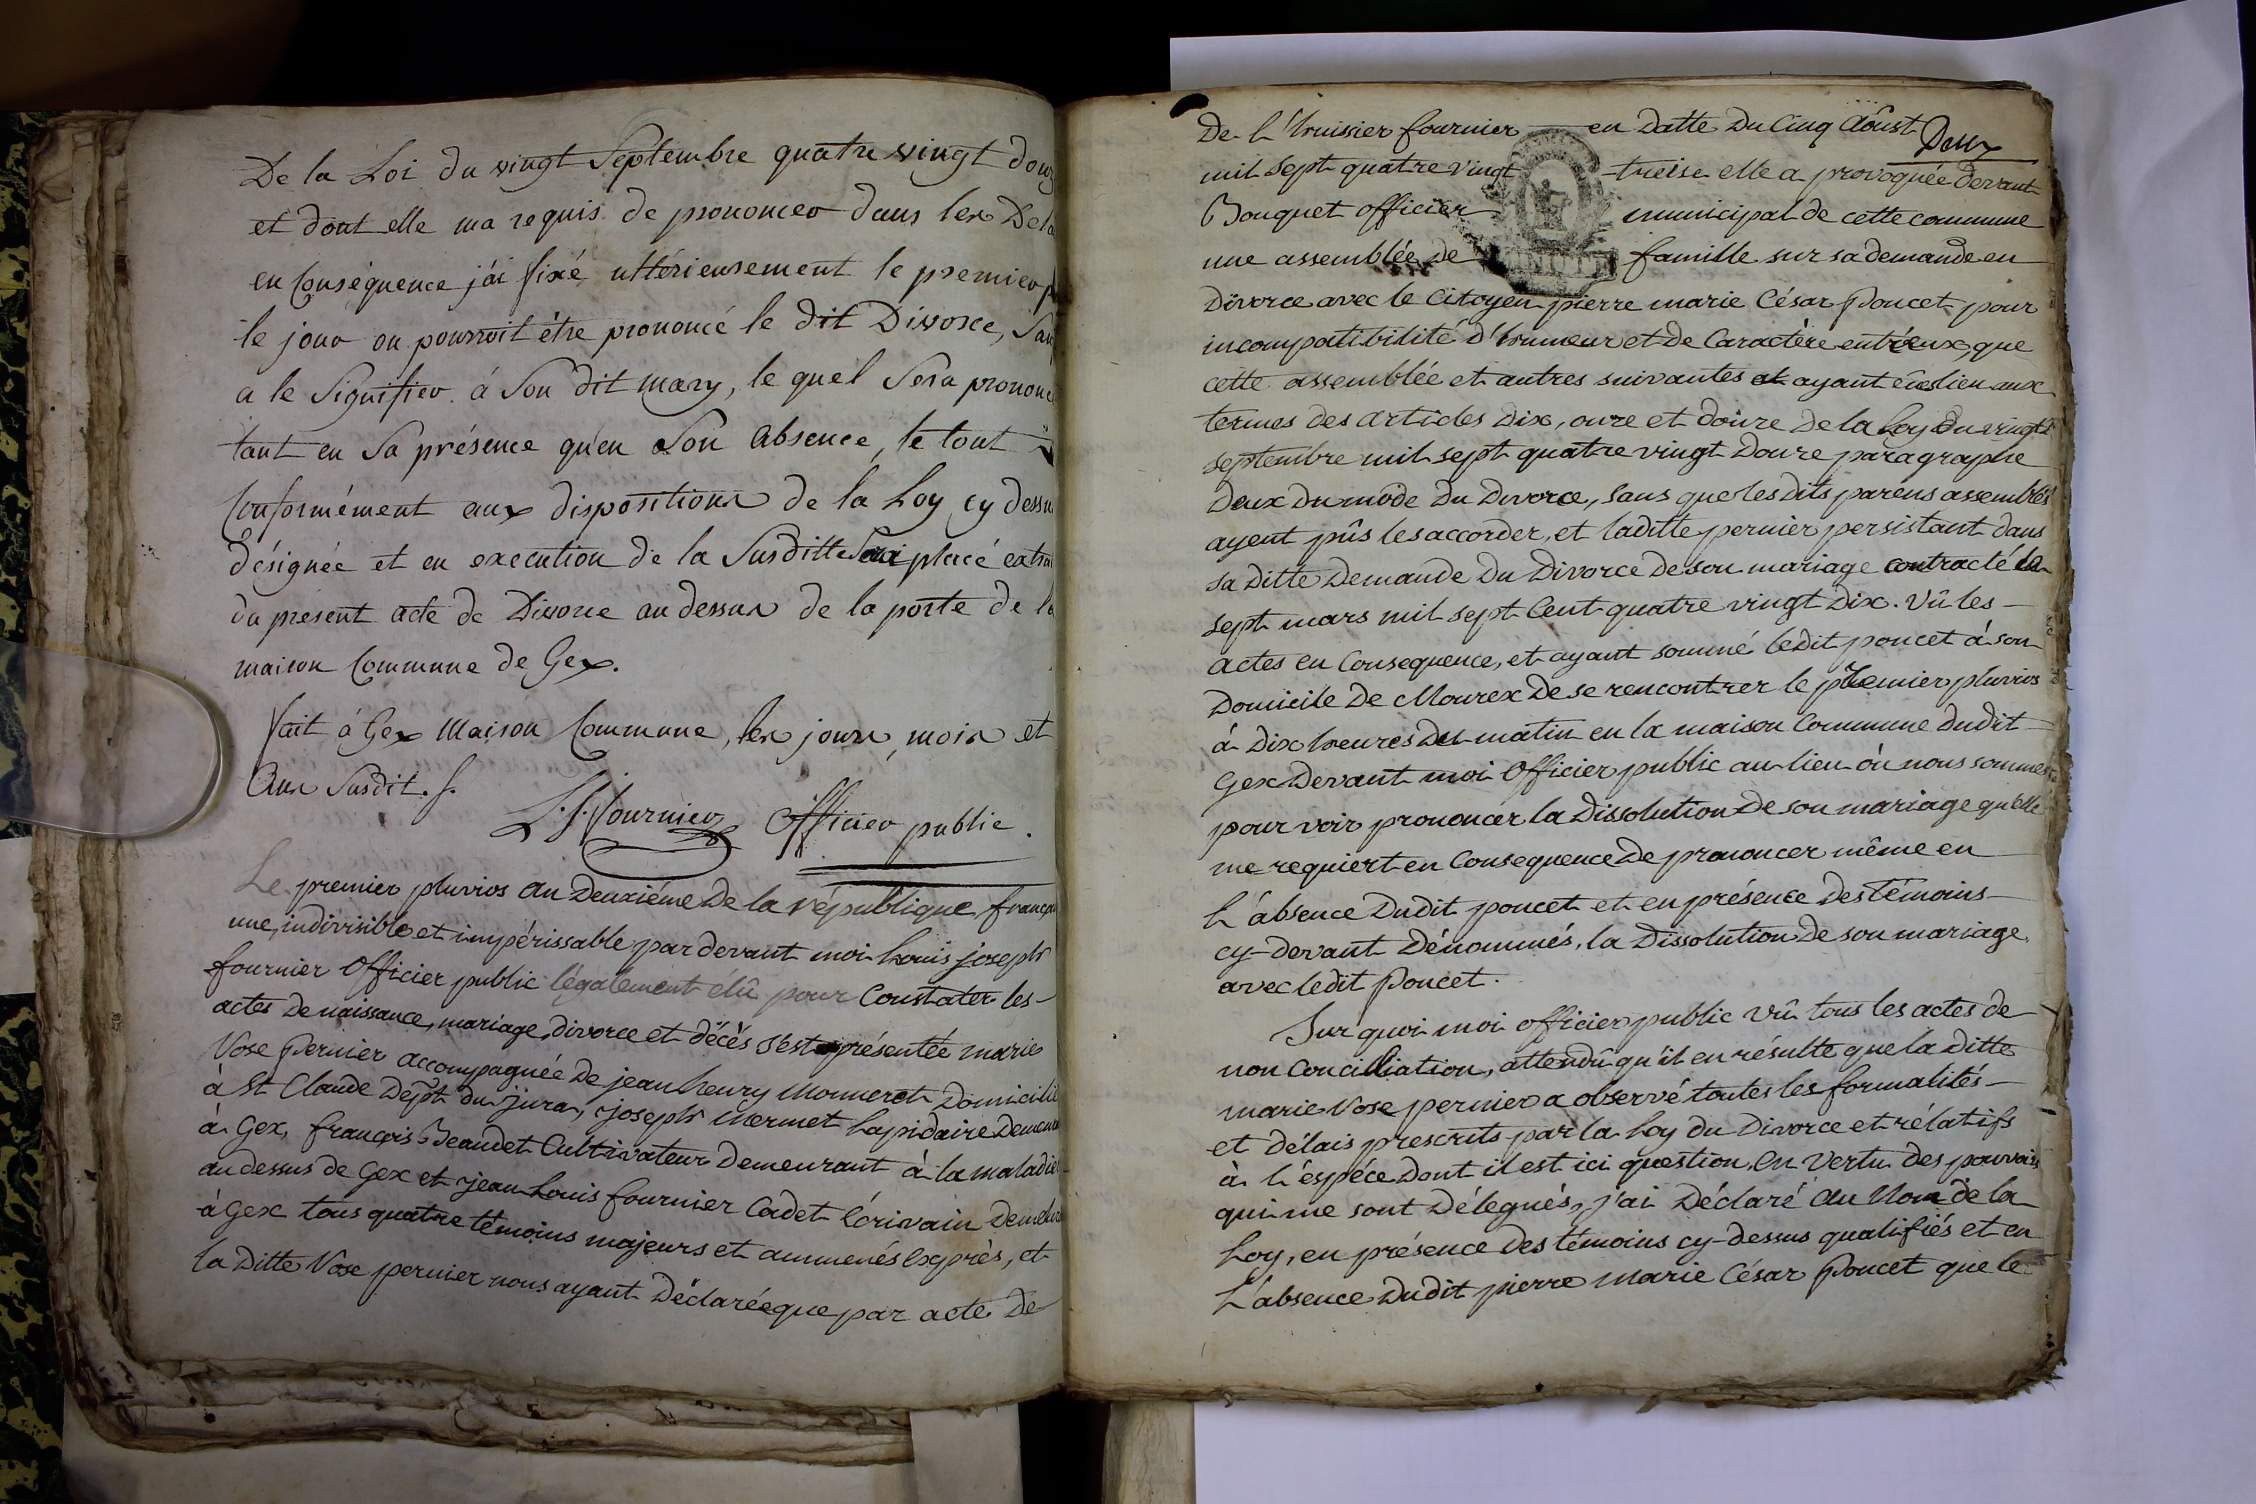 De la Loi du vingt Septembre quatre vingt douz
et dont elle ma requis de prononcer dans les Dela
en Conséquence j'ai fixé ultérieurement le premier
le jour ou pourroit être prononcé le dit Divorce, Sauf
a le Signifier à Son dit mary, le quel Sera prononcé
tant en Sa présence qu'en Son Absence, le tout
Conformément aux dispositions de la Loy cy dessu
désignée et en execution de la Susditte Sera placé extrai
du present acte de Divorce au dessus de la porte de la
maison Commune de Gex.
fait à Gex Maison Commune, les jours, mois et
Ans Susdit.
L. J. Fournier Officier public.
Le premier pluvios an Deuxiéme De la république françai
une, indivisible et impérissable par devant moi Louis joseph
fournier Officier public légalement élû pour Constater les
actes De naissance, mariage, divorce et décès s'est présentée marie
Rose Pernier accompagnée De jean henry Monneret Domicilié
à St Claude Dépt du jura, joseph Mermet Lapidaire Demeura
à Gex, françois Beaudet Cultivateur Demeurant à la maladier
au dessus de Gex et jean Louis fournier Cadet Ecrivain Demeura
à Gex tous quatre témoins majeurs et ammenés Exprès, et
la Ditte Rose pernier nous ayant Déclarée que par acte De
Deux
De l'huissier fournier en Datte Du Cinq Aôust
mil sept quatre vingt treise elle a provoquée devant
Bouquet officier municipal de cette commune
une assemblée de famille sur sa demande en
Divorce avec le Citoyen pierre marie César Poucet pour
incompatibilité d'humeur et De Caractère entr'eux, que
cette assemblée et autres suivantes ayant eües lieu aux
termes Des articles Dix, onze et Douze De la Loy Du vingt
septembre mil sept quatre vingt Douze paragraphe
Deux Du mode Du Divorce, sans que les Dits parens assemblés
ayent pûs les accorder, et laditte pernier persistant Dans
sa Ditte Demande Du Divorce De son mariage contracté le
sept mars mil sept Cent quatre vingt Dix. Vû les
actes en Consequence, et ayant sommé ledit poucet à son
Domicile De Mourex De se rencontrer le premier pluvios
à Dix heures Du matin en la maison Commune Dudit
Gex Devant moi Officier public au lieu où nous sommes
pour voir prononcer la Dissolution De son mariage qu'elle
me requiert en Consequence De prononcer même en
L'absence Dudit poucet et en présence Des témoins
cy-devant Dénommés, la Dissolution De son mariage
avec ledit Poucet.
Sur quoi moi officier public Vû tous les actes de
non Conciliation, attendû qu'il en résulte que la Ditte
marie Rose pernier a observé toutes les formalités
et délais prescrits par la Loy du Divorce et rélatifs
à l'espéce Dont il est ici question, En Vertu Des pouvoirs
qui me sont Délegués, j'ai Déclaré Au Nom de la
Loy, en présence Des témoins cy-dessus qualifiés et en
L'absence Dudit pierre Marie César Poucet que le